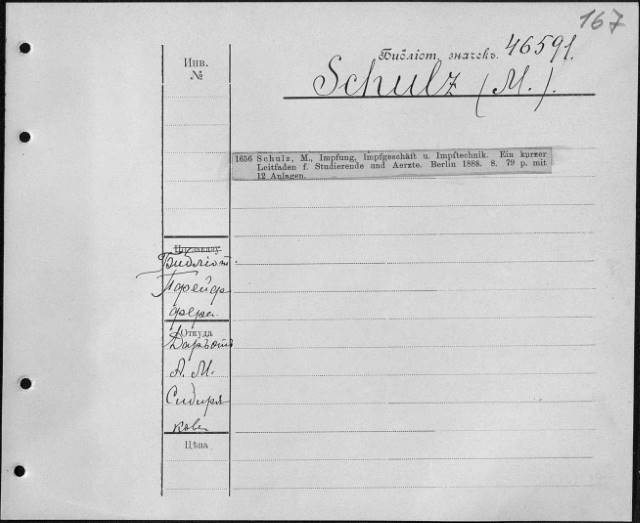 167
Библіот. значекъ. 46591.
Инв.
№
Schulz (M.).
1656 Schulz, M., Impfung, Impfgeschäft u. Impftechnik. Ein kurzer
Leitfaden f. Studierende und Aerzte. Berlin 1888. 8. 79 p. mit
12 Anlagen.
Библіот.
Пфейф
фера.
Откуда
Даръ отъ
А. М.
Сибиря
кова
Цѣна